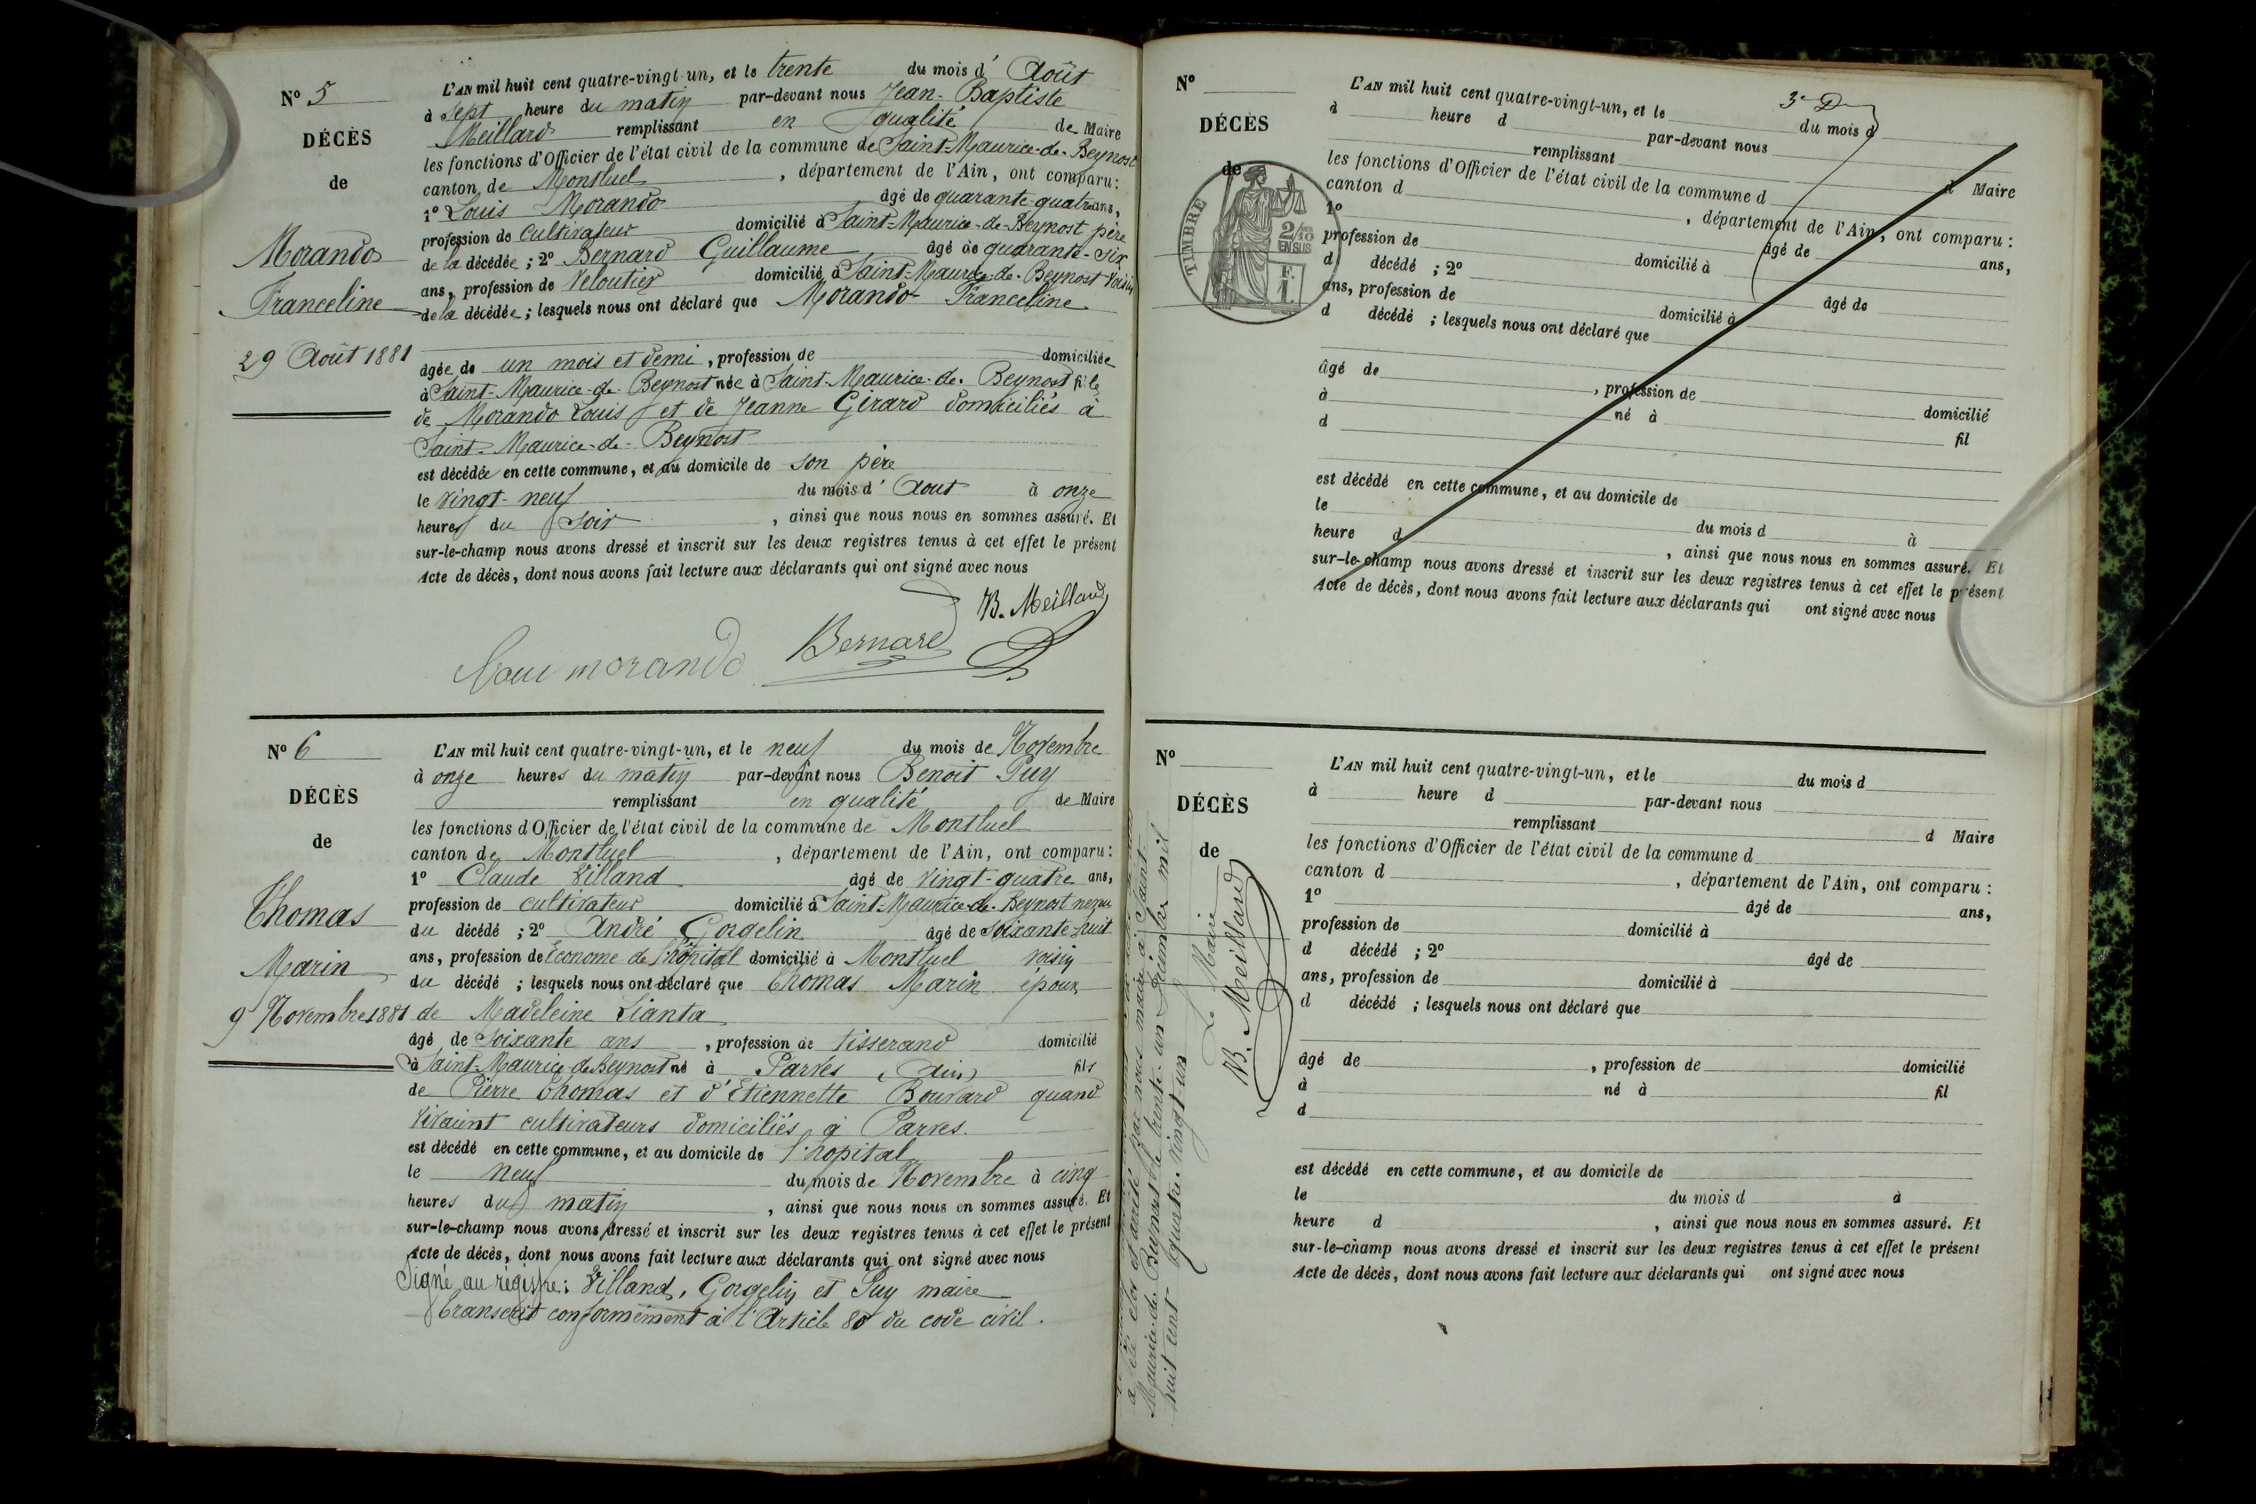 N° 5
DÉCÈS
de
Morando
Franceline
29 Août 1881
L'AN mil huit cent quatre-vingt-un, et le trente du mois d' Août
à sept heure du matin par-devant nous Jean-Baptiste
Meillard remplissant en qualité de Maire
les fonctions d'Officier de l'état civil de la commune de Saint-Maurice-de-Beynost
canton de Montluel, département de l'Ain, ont comparu:
1° Louis Morando âgé de quarante-quatre ans,
profession de cultivateur domicilié à Saint-Maurice-de-Beynost père
de la décédée; 2° Bernard Guillaume âgé de quarante-six
ans, profession de Veloutier domicilié à Saint-Maurice-de-Beynost voisin
de la décédée; lesquels nous ont déclaré que Morando Franceline
âgée de un mois et demi, profession de domiciliée
à Saint-Maurice-de-Beynost née à Saint-Maurice-de-Beynost fille
de Morando Louis et de Jeanne Gérard domiciliés à
Saint-Maurice-de-Beynost
est décédée en cette commune, et au domicile de son père
le vingt-neuf du mois d' Aout à onze
heures du soir, ainsi que nous nous en sommes assuré. Et
sur-le-champ nous avons dressé et inscrit sur les deux registres tenus à cet effet le présent
Acte de décès, dont nous avons fait lecture aux déclarants qui ont signé avec nous
B. Meillard
Bernard
Loui morando
N° 6
DÉCÈS
de
Thomas
Marin
9 Novembre 1881
L'AN mil huit cent quatre-vingt-un, et le neuf du mois de Novembre
à onze heures du matin par-devant nous Benoit Puy
remplissant en qualité de Maire
les fonctions d'Officier de l'état civil de la commune de Montluel
canton de Montluel, département de l'Ain, ont comparu:
1° Claude Villand âgé de vingt-quatre ans,
profession de cultivateur domicilié à Saint-Maurice-de-Beynost neveu
du décédé; 2° André Gorgelin âgé de soixante-huit
ans, profession de Econome de l'hôpital domicilié à Montluel voisin
du décédé; lesquels nous ont déclaré que Thomas Marin époux
de Madeleine Lianta
âgé de soixante ans, profession de tisserand domicilié
à Saint-Maurice-de-Beynost né à Parves (Ain) fils
de Pierre Thomas et d'Etiennette Bouvard quand
vivaient cultivateurs domiciliés à Parves.
est décédé en cette commune, et au domicile de l'hopital
le neuf du mois de Novembre à cinq
heures du matin, ainsi que nous nous en sommes assuré. Et
sur-le-champ nous avons dressé et inscrit sur les deux registres tenus à cet effet le présent
Acte de décès, dont nous avons fait lecture aux déclarants qui ont signé avec nous
Signé au registre: Villand, Gorgelin et Puy maire
Transcrit conformément à l'Article 80 du code civil.
a été clos et arrêté par nous maire à Saint-
Maurice-de-Beynost le trente-un Décembre mil
huit cent-quatre-vingt-un
Le Maire
B. Meillard
N°
DÉCÈS
de
TIMBRE
2/10
EN SUS
F.
1.
3e D
L'AN mil huit cent quatre-vingt-un, et le du mois d
à heure d par-devant nous
remplissant d Maire
les fonctions d'Officier de l'état civil de la commune d
canton d , département de l'Ain, ont comparu:
1° âgé de ans,
profession de domicilié à
d décédé; 2° âgé de
ans, profession de domicilié à
d décédé; lesquels nous ont déclaré que
âgé de , profession de domicilié
à né à fil
d
est décédé en cette commune, et au domicile de
le du mois d à
heure d , ainsi que nous nous en sommes assuré. Et
sur-le-champ nous avons dressé et inscrit sur les deux registres tenus à cet effet le présent
Acte de décès, dont nous avons fait lecture aux déclarants qui ont signé avec nous
N°
DÉCÈS
de
L'AN mil huit cent quatre-vingt-un, et le du mois d
à heure d par-devant nous
remplissant d Maire
les fonctions d'Officier de l'état civil de la commune d
canton d , département de l'Ain, ont comparu:
1° âgé de ans,
profession de domicilié à
d décédé; 2° âgé de
ans, profession de domicilié à
d décédé; lesquels nous ont déclaré que
âgé de , profession de domicilié
à né à fil
d
est décédé en cette commune, et au domicile de
le du mois d à
heure d , ainsi que nous nous en sommes assuré. Et
sur-le-champ nous avons dressé et inscrit sur les deux registres tenus à cet effet le présent
Acte de décès, dont nous avons fait lecture aux déclarants qui ont signé avec nous